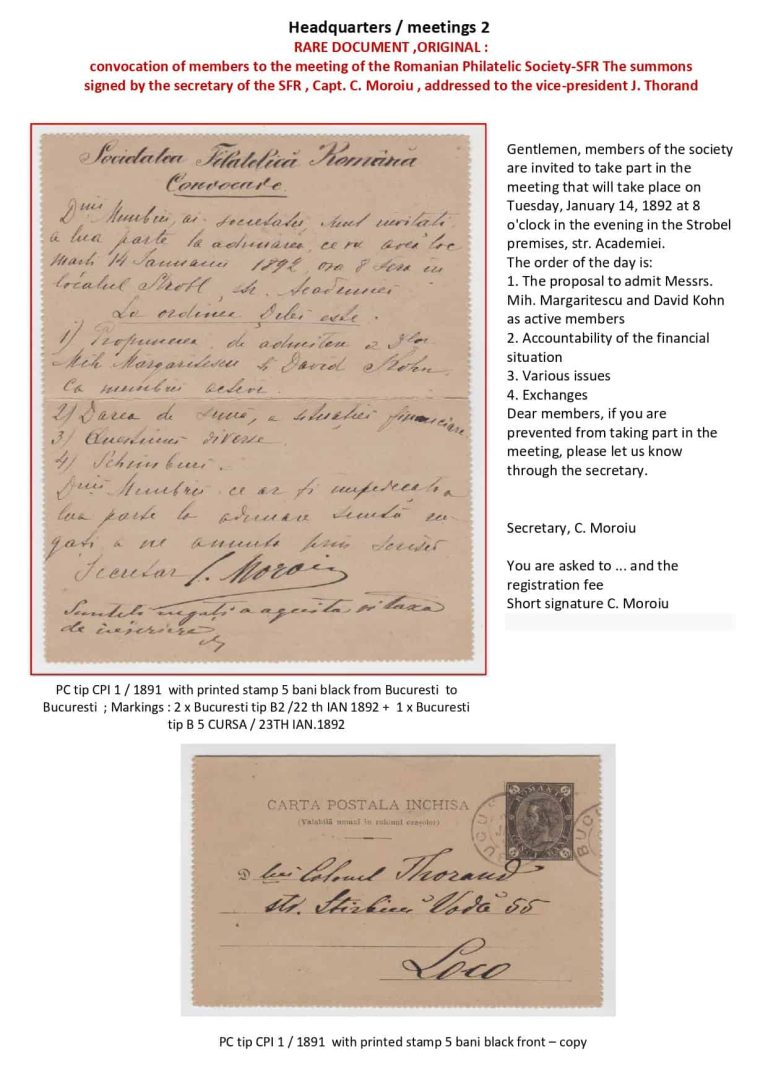 Headquarters / meetings 2
RARE DOCUMENT ,ORIGINAL :
convocation of members to the meeting of the Romanian Philatelic Society-SFR The summons
signed by the secretary of the SFR , Capt. C. Moroiu , addressed to the vice-president J. Thorand
Societatea Filatelică Română
Convocare
Dnii Membrii, ai societatei, sunt invitati
a lua parte la adunarea, ce va avea loc
Marti 14 Ianuariu 1892, ora 8 sera in
localul Strobl, str. Academiei
La ordinea Dilei este.
1) Propunerea de admitere a Dlor
Mih Margaritescu si David Kohn
ca membrii activi.
2) Darea de sémă, a situației financiare
3) Questiuni diverse.
4) Schimburi.
Dnii Membrii ce ar fi impedecati a
lua parte la adunare sunt
a ne anunta prin
Secretar C. Moroiu
Sunteti rugati a si taxa
de inscriere
Gentlemen, members of the society
are invited to take part in the
meeting that will take place on
Tuesday, January 14, 1892 at 8
o'clock in the evening in the Strobel
premises, str. Academiei.
The order of the day is:
1. The proposal to admit Messrs.
Mih. Margaritescu and David Kohn
as active members
2. Accountability of the financial
situation
3. Various issues
4. Exchanges
Dear members, if you are
prevented from taking part in the
meeting, please let us know
through the secretary.
Secretary, C. Moroiu
You are asked to ... and the
registration fee
Short signature C. Moroiu
PC tip CPI 1 / 1891 with printed stamp 5 bani black from Bucuresti to
Bucuresti ; Markings : 2 x Bucuresti tip B2 /22 th IAN 1892 + 1 x Bucuresti
tip B 5 CURSA / 23TH IAN.1892
CARTA POSTALA INCHISA
(Valabilă numai in raionul orașelor)
D lui Colonel Thorand
str. Stirbei Vodă 55
Loco
PC tip CPI 1 / 1891 with printed stamp 5 bani black front – copy